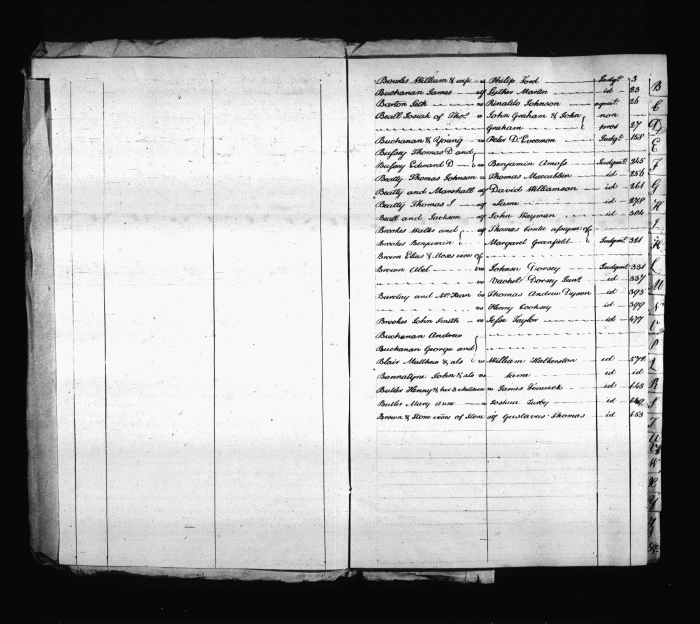 Bowles William & wife vs Philip Ford Judgt 3
Buchanan James agt Luther Martin id 23
Barton Seth vs Rinaldo Johnson 26
Beall Josiah of Thos vs John Graham & John non
Graham pros 27
Buchanan & Young vs Peter D. Judgt 158
Bussey Thomas D and
Bussey Edward D vs Benjamin Amoss Judgmt 245
Beatty Thomas Johnson vs Thomas id 256
Beatty and Marshall agt David Williamson id 261
Beatty Thomas J agt Same id 278
Beall and Jackson agt John Wayman id 304
Brookes Walter and agt Thomas Contee of
Brookes Benjamin Margaret Greenfield Judgmt 321
Brown Elias & Moses of
Brown Abel vs Johnsa Dorsey Judgmt 331
vs Vachel Dorsey id 337
Barclay and McKean vs Thomas Andrew Dyson id 393
vs Henry Cooksey id 399
Brookes John Smith vs Jesse Taylor id 477
Buchanan Andrew
Buchanan George and
Blair Matthew & als vs William id 572
Bannatyne John & als vs Same id id
Butler Henny & her 3 children vs James Fenwick id 648
Butler Mary Anne vs Joshua id 649
Brown & Stone of Stone agt Gustavus Thomas id 653
B
C
D
E
F
G
H
I
K
L
M
N
O
P
R
S
T
W
Y